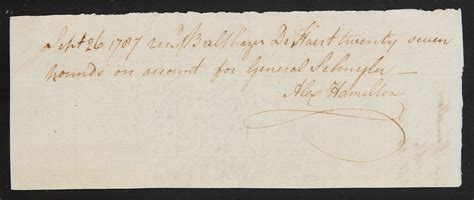 Sept 26 1787 recd Balthazer De Haert twenty seven
pounds on account for General Schuyler —
Alex Hamilton